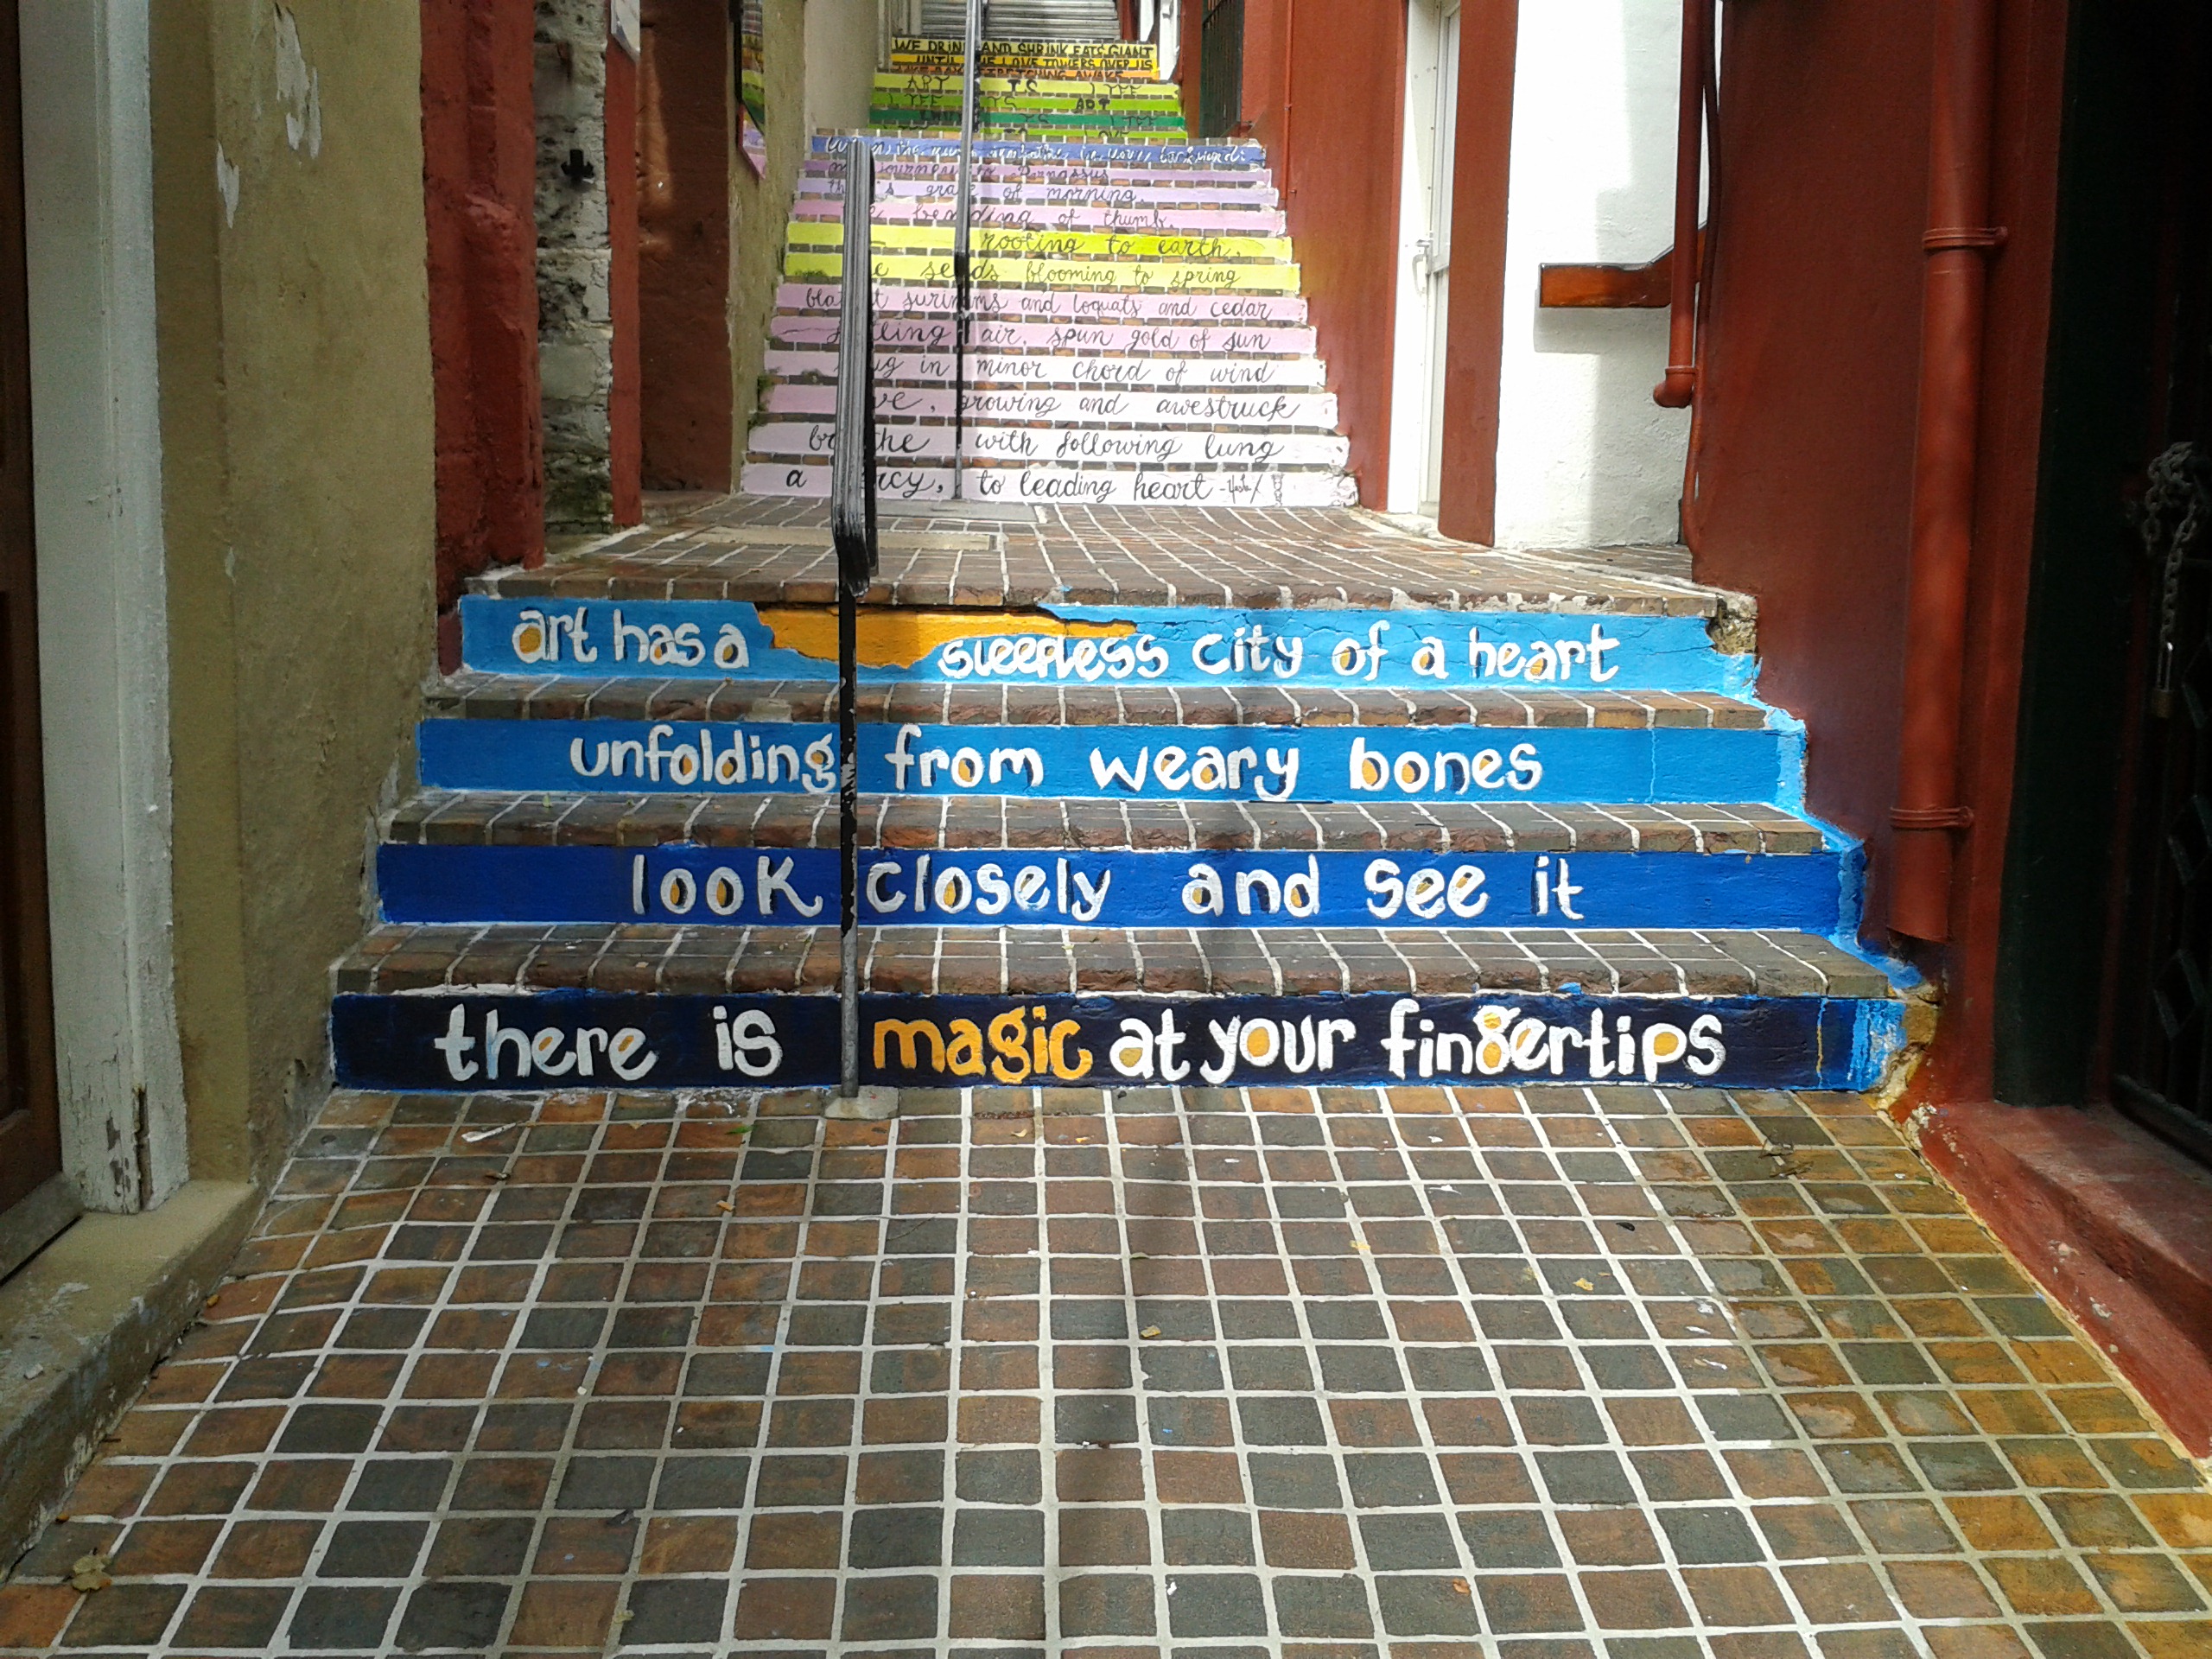 WE DRINK AND SHRINK EATS GIANT
UNTIL LOVE TOWERS OVER US
STRETCHING AWAKE
ART IS LIFE
LIFE IS ART
IS LIFE
IS LOVE
in your
my journey to Parnassus
this grace of morning.
bending of thumb.
rooting to earth,
seeds blooming to spring
surinams and loquats and cedar
air, spun gold of sun
in minor chord of wind
, growing and awestruck
breathe with following lung
a mercy, to leading heart
art has a sleepless city of a heart
unfolding from weary bones
look closely and see it
there is magic at your fingertips